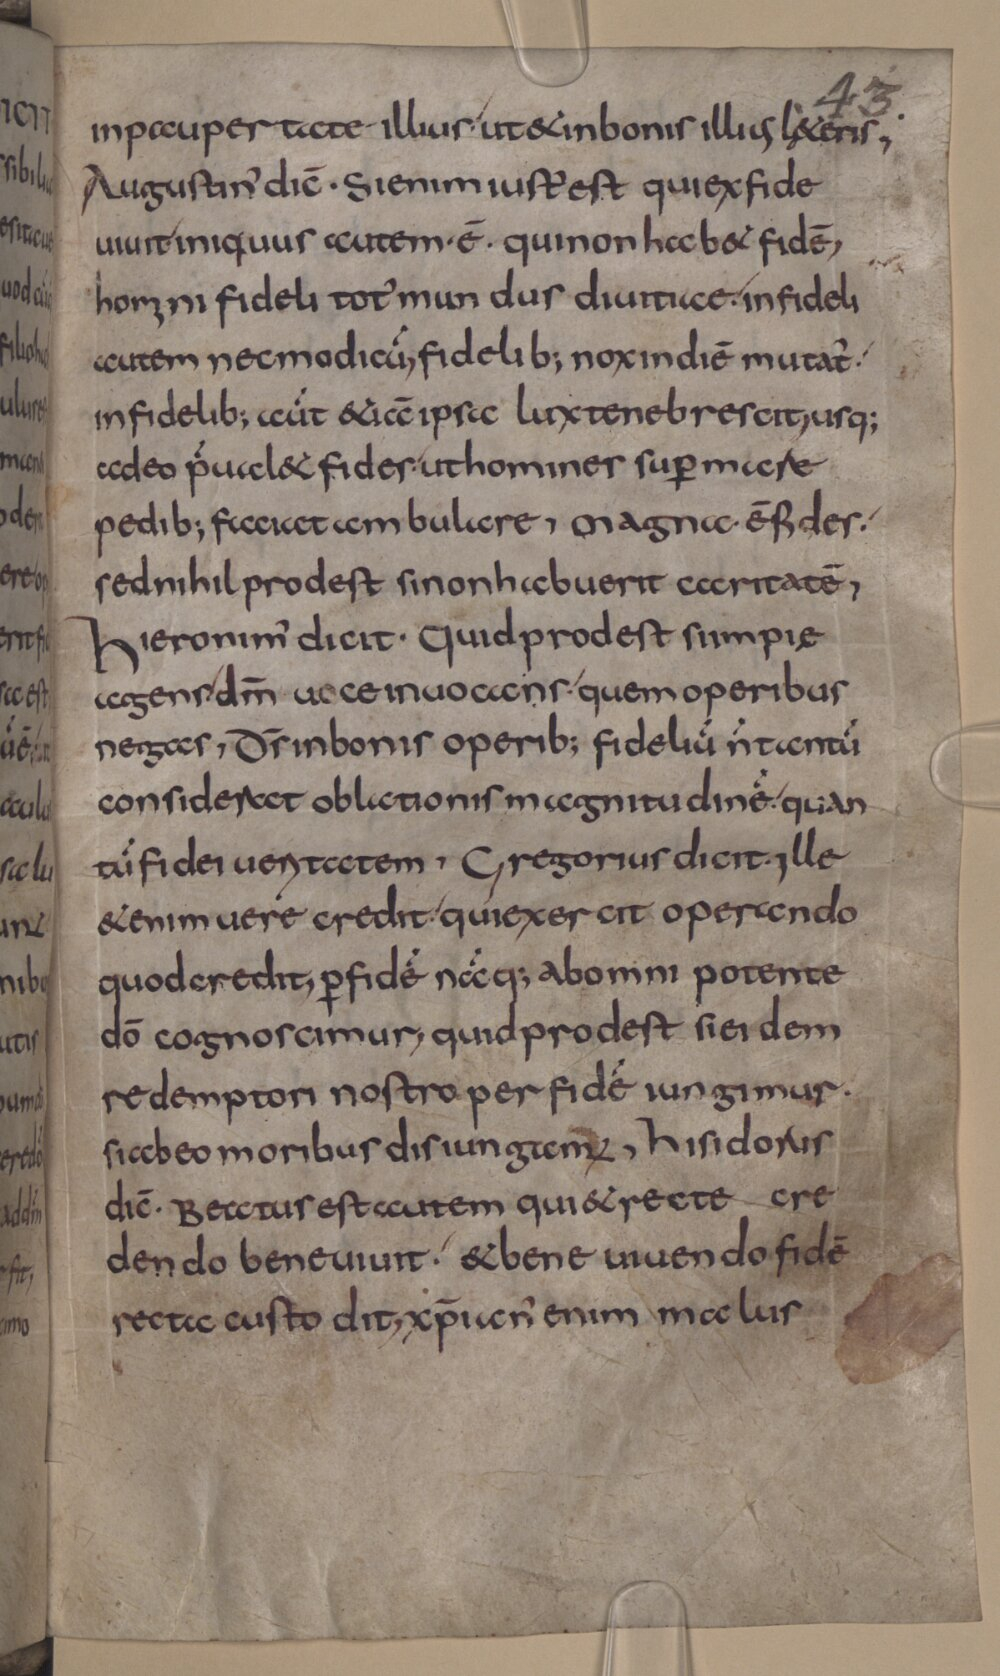 43
inpauper tate illius ut&inbonis illius l&eris;
Augustin' dic̄. Si enim iust'est quiexfide
uiuit iniquus autem.ē. quinon hab& fidē,
homini fideli tot'mun dus diuitiae. infideli
autem necmodicū, fidelib; nox indiē mutat'.
infidelib; aūt &iā ipsa lux tenebrescit, usq;
adeo p̄ual& fides uthomines sup̱ mare
pedib; faciat am bulare, Magna.ē fides.
sednihil prodest sinonhabuerit caritatē,
Hieronim' dicit. Quid prodest simpię
agens dm̄ uoce inuocans quem operibus
negas, Ds̄ inbonis operib; fideliū n̄ tantū
considerat oblationis magnitu dinē. quan
tū fidei ueritatem, Gregorius dicit. Ille
&enim uere credit quiexer cit operando
quodcredit, p̱fidē nāq; abomni potente
dō cognoscimur, quidprodest siei dem
redemptori nostro per fidē iungimur.
siabeo moribus disiungamur, Hisidorus
dic̄. Beatus est autem qui&recte cre
den do beneuiuit. &bene uiuendo fidē
recta custo dit, xp̄ian' enim malus